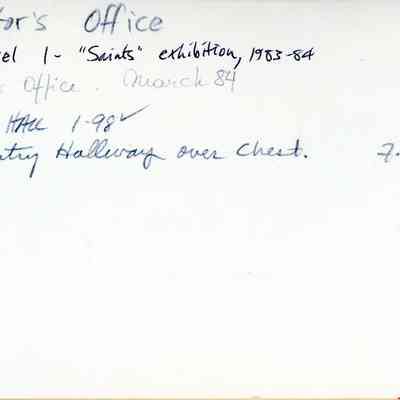 tor's Office
el 1 - "Saints" exhibition, 1983-84
s Office. March 84
HALL 1-98✓
ntry Hallway over Chest. 7.